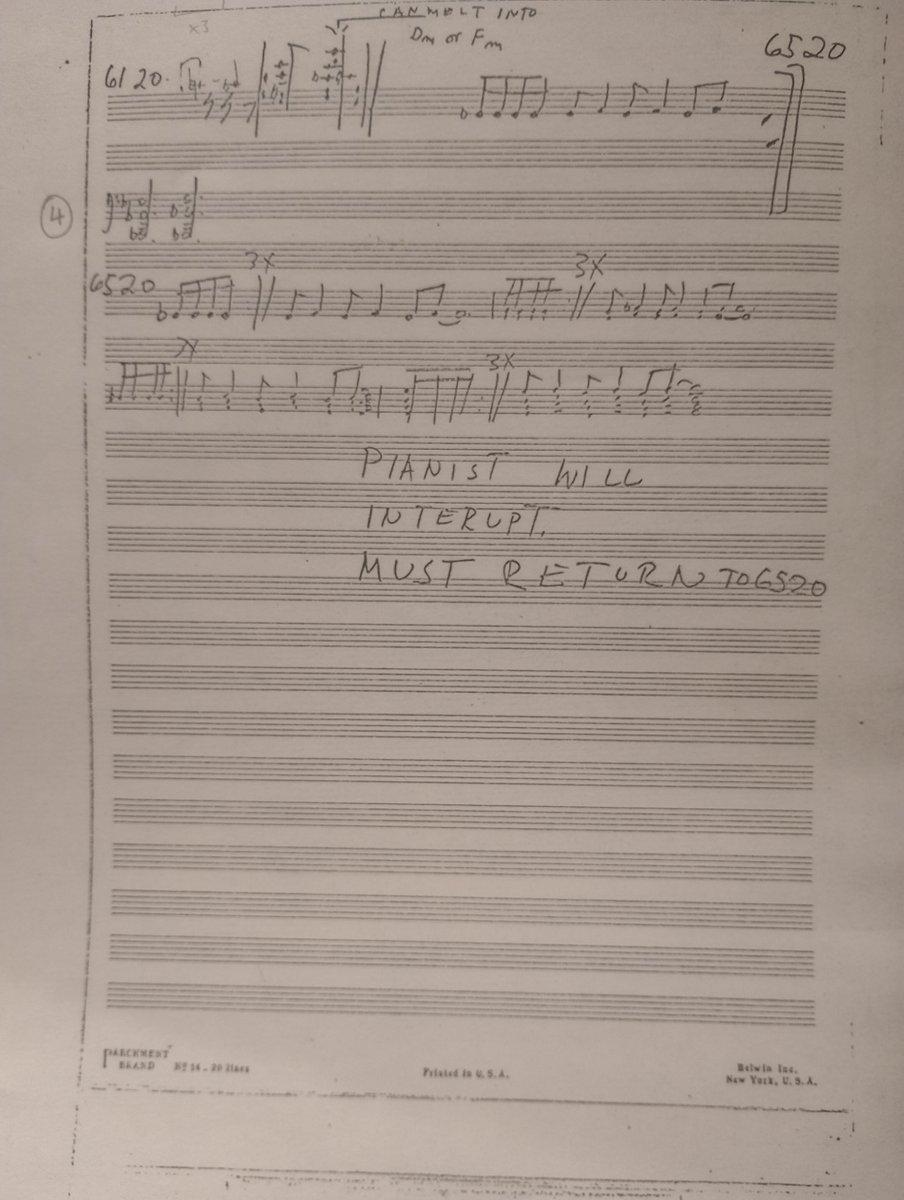 x3
CAN MELT INTO
Dm or Fm
6520
6120
4
3X
3X
6520
3X
PIANIST WILL
INTERUPT.
MUST RETURN TO 6520
PARCHMENT
BRAND Nº 14 - 20 lines
Printed in U. S. A.
Belwin Inc.
New York, U. S. A.